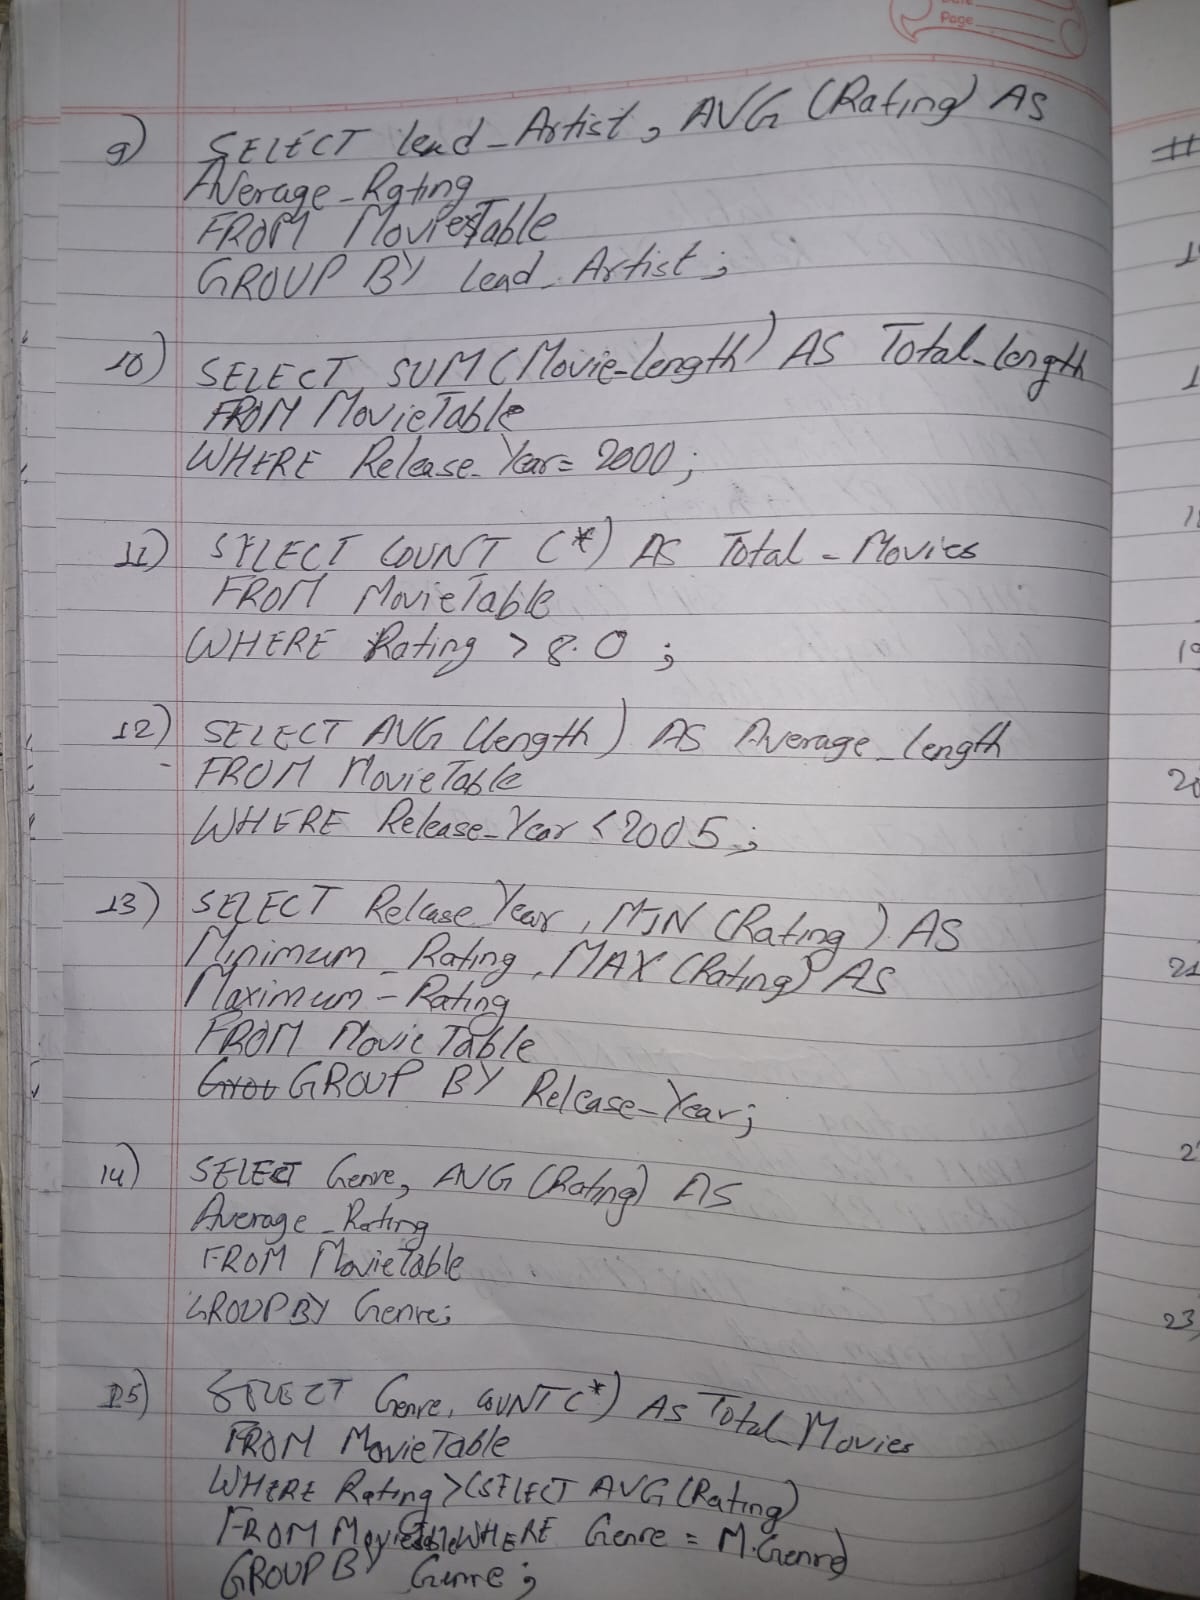 Date
Page
9) SELECT lead_Artist, AVG (Rating) AS
Average_Rating
FROM MoviesTable
GROUP BY lead_Artist;
10) SELECT SUM(Movie_length) AS Total_length
FROM MovieTable
WHERE Release_Year= 2000;
11) SELECT COUNT (*) AS Total_Movies
FROM MovieTable
WHERE Rating > 8.0 ;
12) SELECT AVG (length) AS Average_length
FROM MovieTable
WHERE Release_Year < 2005;
13) SELECT Release Year, MIN (Rating) AS
Minimum_Rating, MAX (Rating) AS
Maximum_Rating
FROM MovieTable
GROUP BY Release_Year;
14) SELECT Genre, AVG (Rating) AS
Average_Rating
FROM MovieTable
GROUP BY Genre;
15) SELECT Genre, COUNT (*) AS Total_Movies
FROM MovieTable
WHERE Rating >(SELECT AVG (Rating)
FROM MovieTable WHERE Genre = M.Genre)
GROUP BY Genre;
#
20
21
23